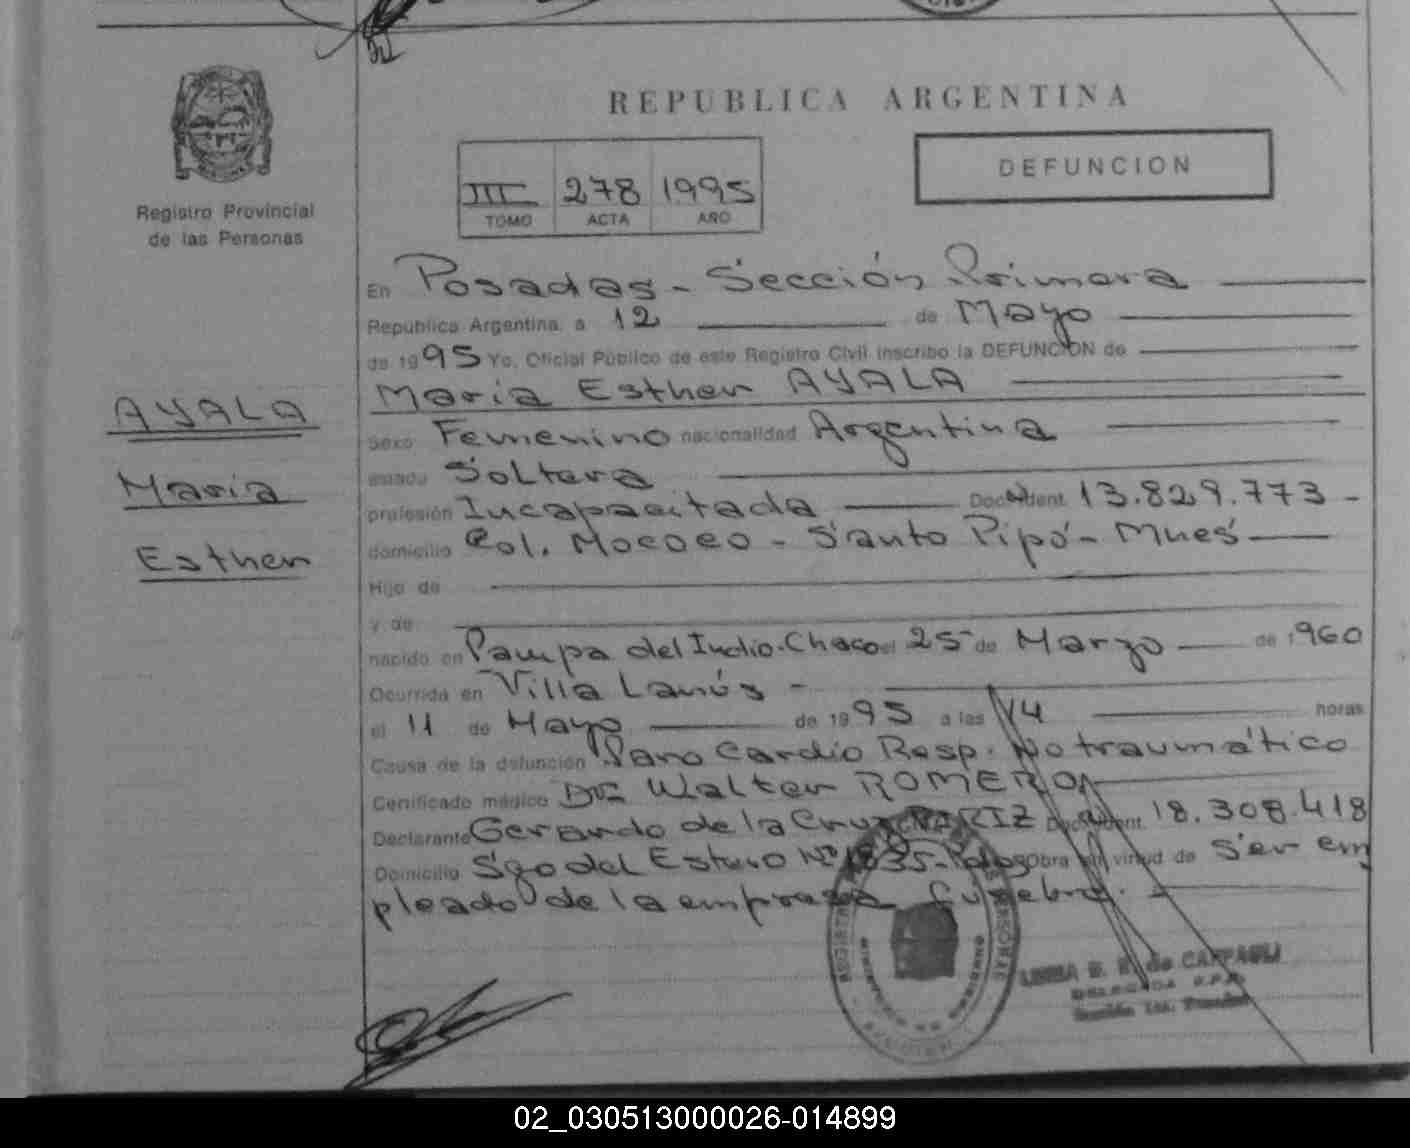 REPUBLICA ARGENTINA
DEFUNCION
III 278 1995
TOMO ACTA AÑO
Registro Provincial
de las Personas
En Posadas - Sección Primera
República Argentina, a 12 de Mayo
de 1995 Yo, Oficial Público de este Registro Civil inscribo la DEFUNCION de
María Esther AYALA
AYALA
María
Esther
sexo Femenino nacionalidad Argentina
estado Soltera
profesión Incapacitada Doc. Ident. 13.829.773 -
domicilio Col. Mococo - Santo Pipó - Mnes
Hijo de
y de
nacido en Pampa del Indio. Chaco el 25 de Marzo de 1960
Ocurrida en Villa Lanús -
el 11 de Mayo de 1995 a las 14 horas
Causa de la defunción Paro Cardio Resp. No traumático
Certificado médico Dr. Walter ROMERO
Declarante Gerardo de la Cruz Doc. Ident. 18.308.418
Domicilio Sgo del Estero Nº Obra en virtud de Ser em
pleado de la empresa fúnebre. -
de CAPPAGLI
02_030513000026-014899